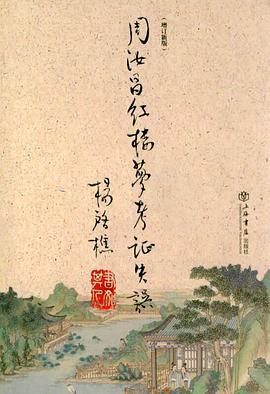 周汝昌红楼梦考证失误
(增订新版)
杨启樵
上海书店
出版社